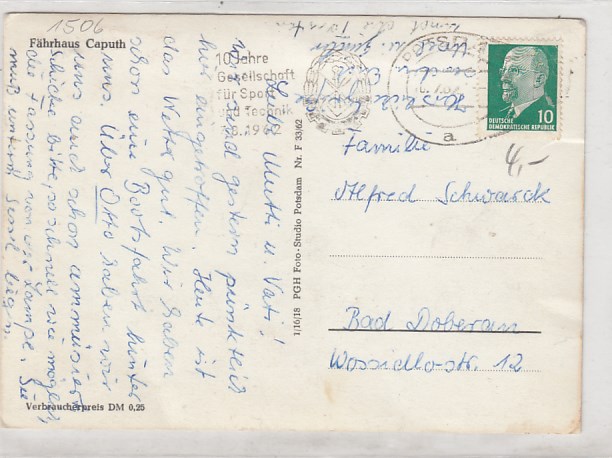 1506
Fährhaus Caputh
Liebe Mutti u. Vati!
Wir sind gestern pünktlich
hier eingetroffen. Heute ist
das Wetter gut. Wir haben
schon eine Bootsfahrt hinter
uns. Über Otto haben wir
uns auch schon amüsiert
Schicke bitte so schnell wie möglich
die Fassung von der Lampe. Sie
muß unterm Sessel liegen.
Herzliche
10 Jahre
Gesellschaft
für Sport
und Technik
7.8.1962
a
10
DEUTSCHE
DEMOKRATISCHE REPUBLIK
4,-
Familie
Alfred Schwarck
Bad Doberan
Wossidlo-str. 12
1/16/18 PGH Foto-Studio Potsdam Nr. F 33/62
Verbraucherpreis DM 0,25